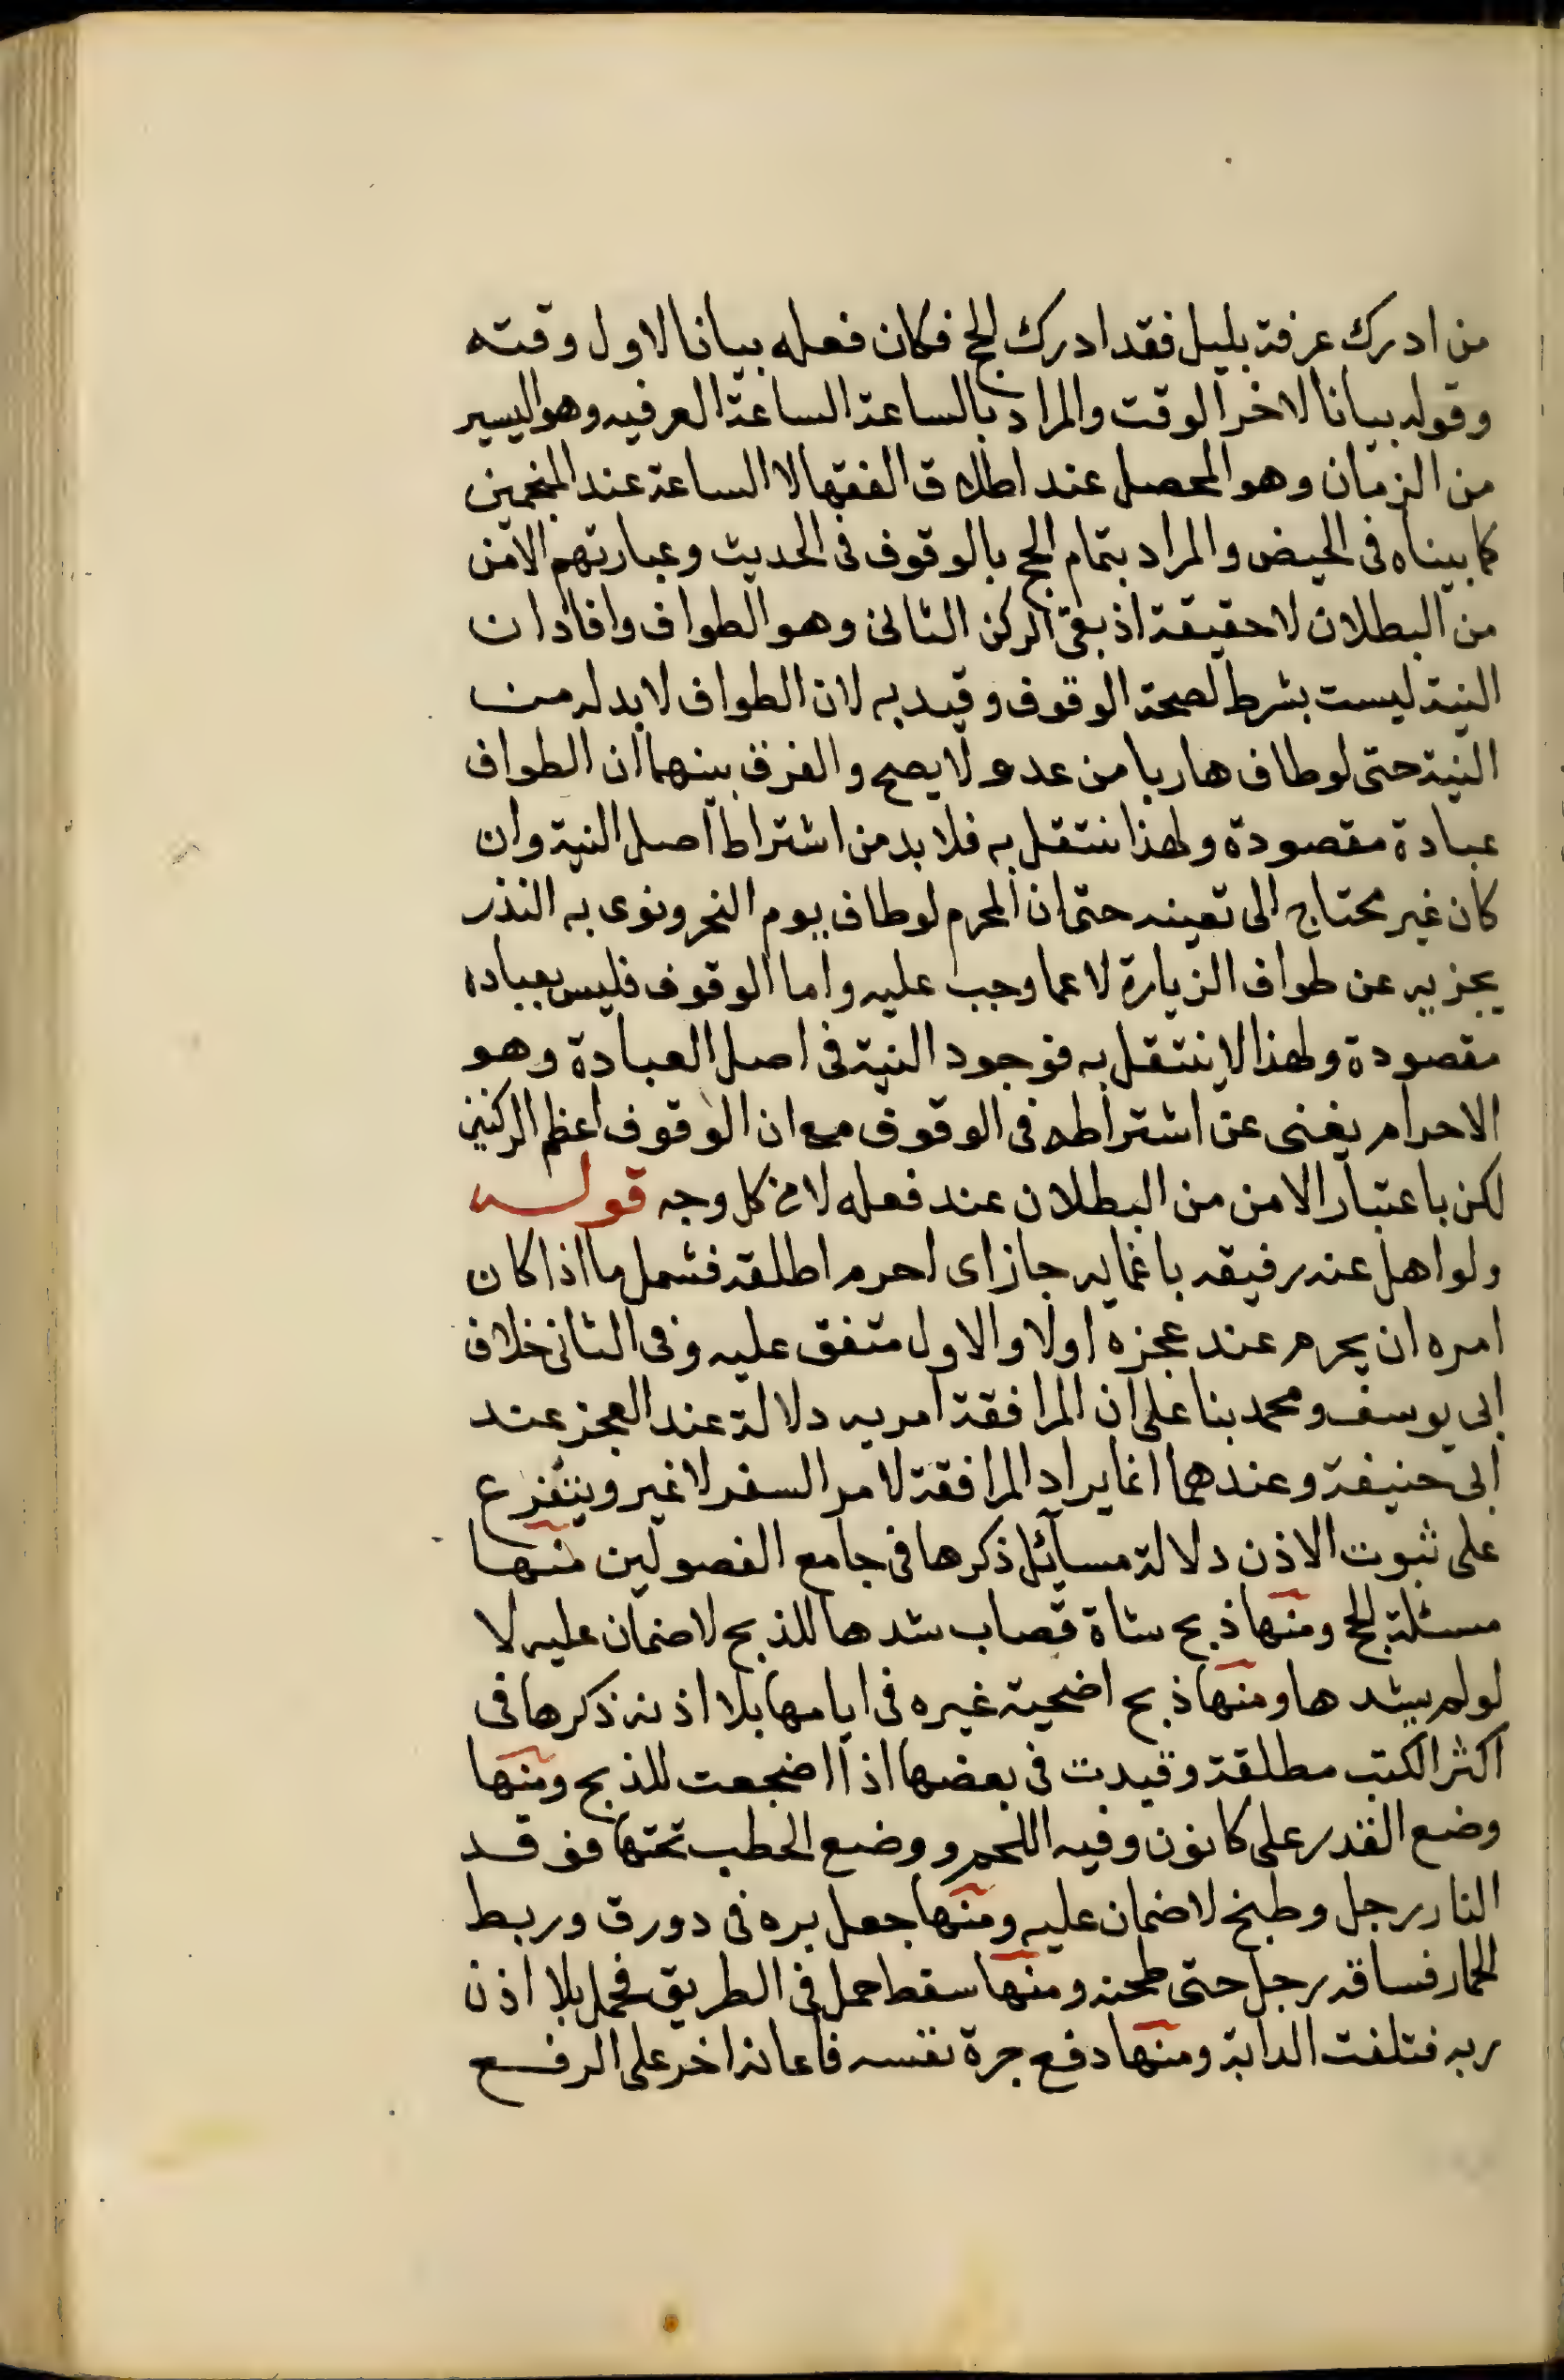 من ادرك عرفة بليل فقد ادرك الحج فكان فعله بيانا لاول وقته
وقوله بيانا لاخر الوقت والمراد بالساعة الساعة العرفيه وهو اليسير
من الزمان وهو المحصل عند اطلاق الفقها لا الساعة عند المنجمين
كما بيناه فى الحيض والمراد بتمام الحج بالوقوف فى الحديث وعبارتهم الامن
من البطلان لا حقيقة اذ بقى الركن الثانى وهو الطواف وافاد ان
النية ليست بشرط لصحة الوقوف وقيد به لان الطواف لا بد له من
النية حتى لو طاف هاربا من عدو لا يصح والفرق بينهما ان الطواف
عبادة مقصودة ولهذا نتتقل به فلا بد من اشتراط اصل النية وان
كان غير محتاج الى تعيينه حتى ان المحرم لو طاف يوم النحر ونوى به النذر
يجزيه عن طواف الزيارة لا عما وجب عليه واما الوقوف فليس بعباده
مقصودة ولهذا لا ينتقل به فوجود النية فى اصل العبادة وهو
الاحرام يغنى عن اشتراطه فى الوقوف مع ان الوقوف اعظم الركنين
لكن باعتبار الامن من البطلان عند فعله لا من كل وجه قوله
ولو اهل عنه رفيقه باغمايه جاز اى احرم اطلقه فشمل ما اذا كان
امره ان يحرم عند عجزه اولا والاول متفق عليه وفى الثانى خلاف
ابى يوسف ومحمد بنا على ان المرافقة امر به دلالة عند العجز عند
ابى حنيفة وعندهما انما يراد المرافقة لامر السفر لا غير ويتفرع
على ثبوت الاذن دلالة مسآئل ذكرها فى جامع الفصولين منها
مسئلة الحج ومنها ذبح شاة قصاب شدها للذبح لا ضمان عليه لا
لو لم يشدها ومنها ذبح اضحية غيره فى ايامها بلا اذنه ذكرها فى
اكثر الكتب مطلقة وقيدت فى بعضها اذا اضجعت للذبح ومنها
وضع القدر على كانون وفيه اللحم ووضع الحطب تحتها فوقد
النار رجل وطبخ لا ضمان عليه ومنها جعل بره فى دورق وربط
الحمار فساقه رجل حتى طحنه ومنها سقط حمل فى الطريق فحمل بلا اذن
ربه فتلفت الدابة ومنها دفع جرة نفسه فاعانه اخر على الرفع